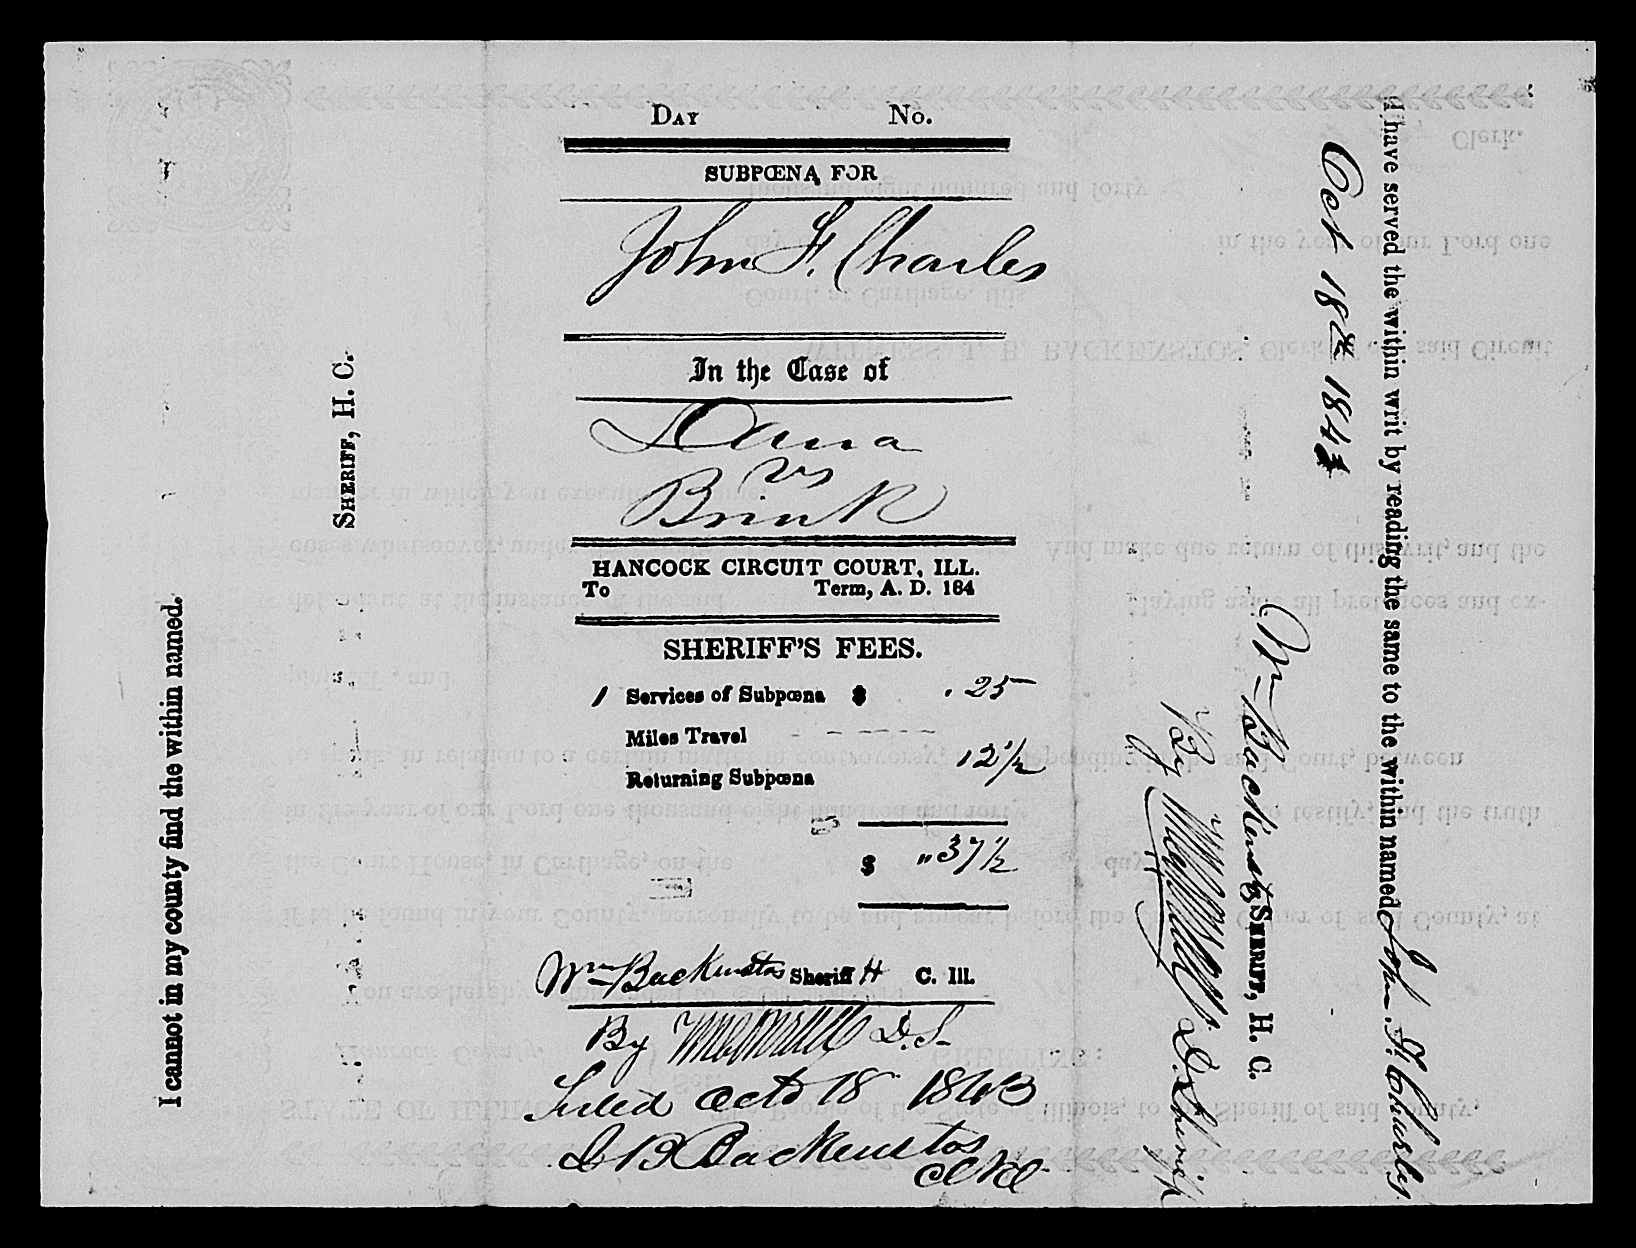 DAY No.
SUBPŒNA FOR
John F. Charles
In the Case of
Dana
vs
Brink
HANCOCK CIRCUIT COURT, ILL.
To Term, A. D. 184
SHERIFF'S FEES.
1 Services of Subpœna $ .25
Miles Travel - - - - - -
Returning Subpœna 12½
$ "37½
Wm Backenstos Sheriff H C. Ill.
By D.S.
Filed Oct 18 1843
J B Backenstos
Clk
I have served the within writ by reading the same to the within named John F. Charles
Oct 18th 1843
Wm Backenstos SHERIFF, H. C.
By D. Sheriff
SHERIFF, H. C.
I cannot in my county find the within named.